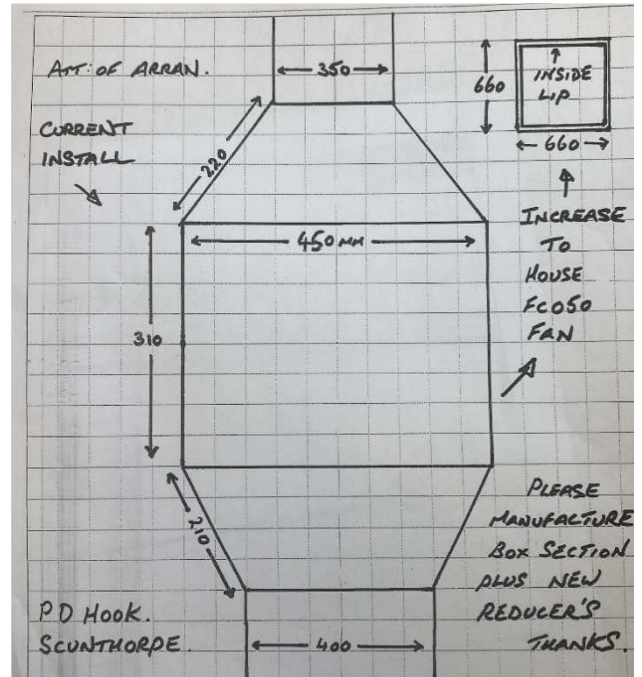 ATT: OF ARRAN.
CURRENT
INSTALL
350
220
450 MM
310
210
400
660
INSIDE
LIP
660
INCREASE
TO
HOUSE
FC050
FAN
PLEASE
MANUFACTURE
BOX SECTION
PLUS NEW
REDUCER'S
THANKS.
PD HOOK.
SCUNTHORPE.